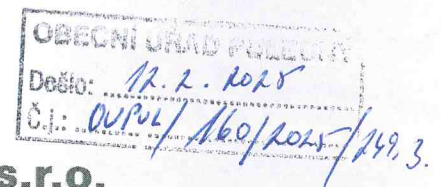 OBECNÍ ÚŘAD
Došlo: 12.2.2025
Č.j.: OUPUL/160/2025/249.3.
s.r.o.